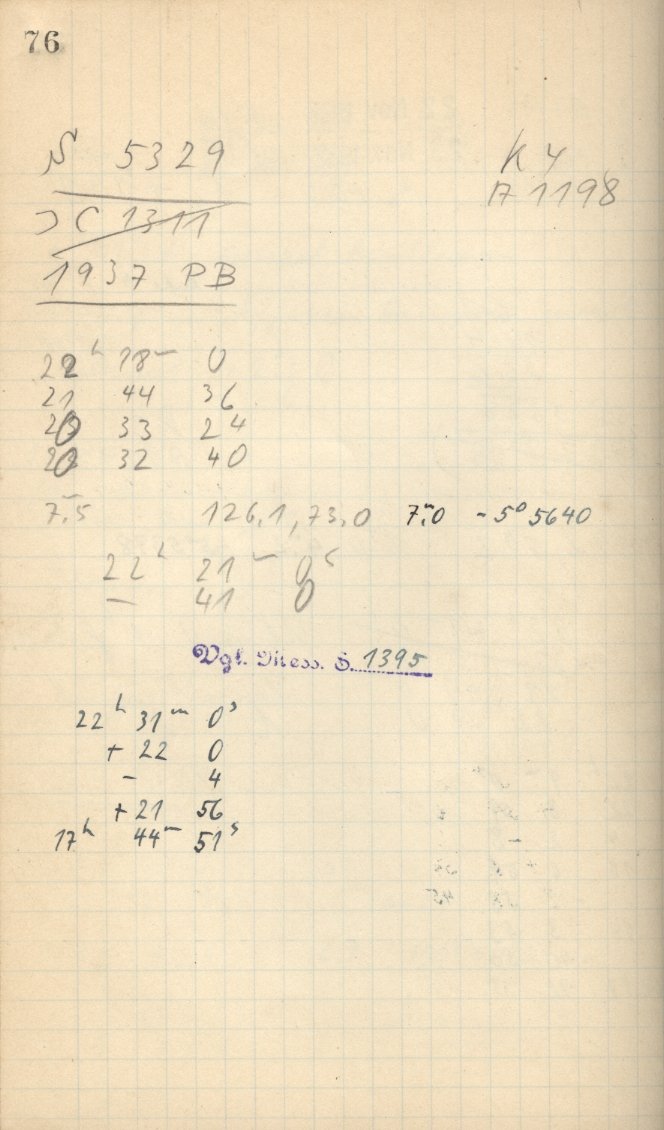 76
N 5329
K 4
A 1198
JC 1311
1937 PB
22ʰ 18ᵐ 0
21 44 36
20 33 24
20 32 40
7,ᵐ5 126,1, 73,0 7,ᵐ0 -5° 5640
22ʰ 21ᵐ 0ˢ
- 41 0
Vgl. Mess. S. 1395
22ʰ 31ᵐ 0ˢ
+ 22 0
- 4
+ 21 56
17ʰ 44ᵐ 51ˢ